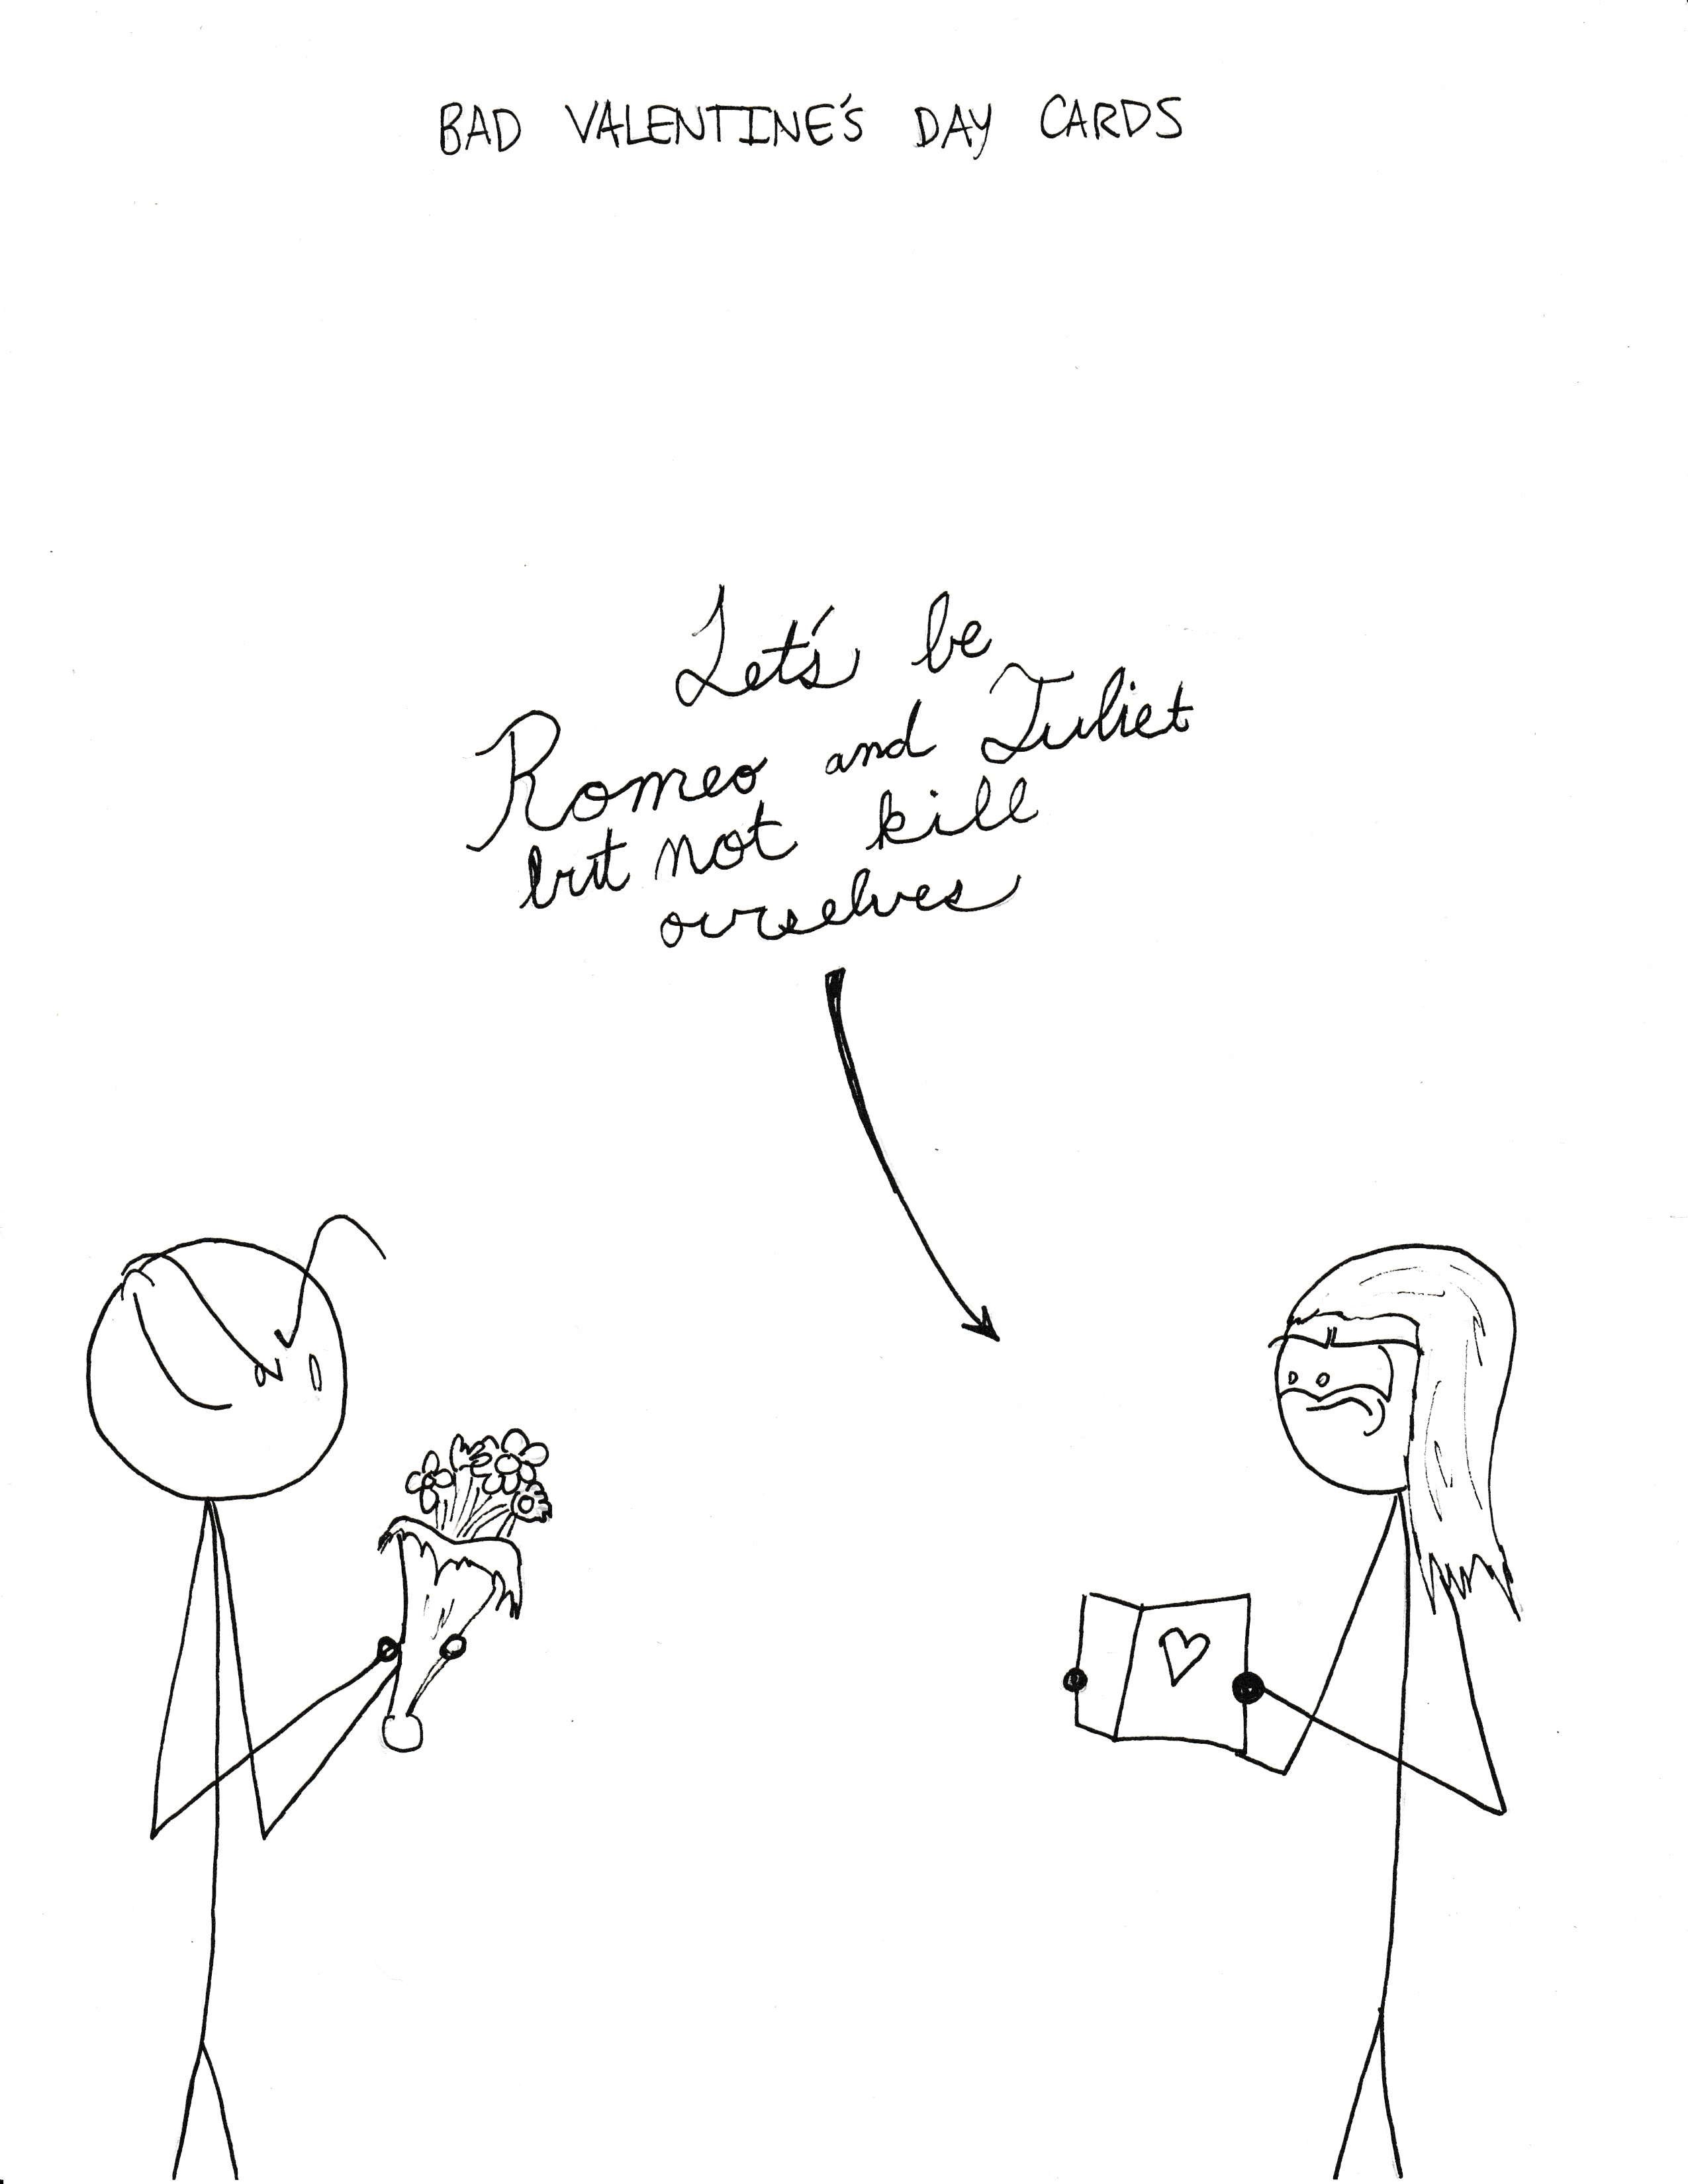 BAD VALENTINE'S DAY CARDS
Let's be
Romeo and Juliet
but not kill
ourselves